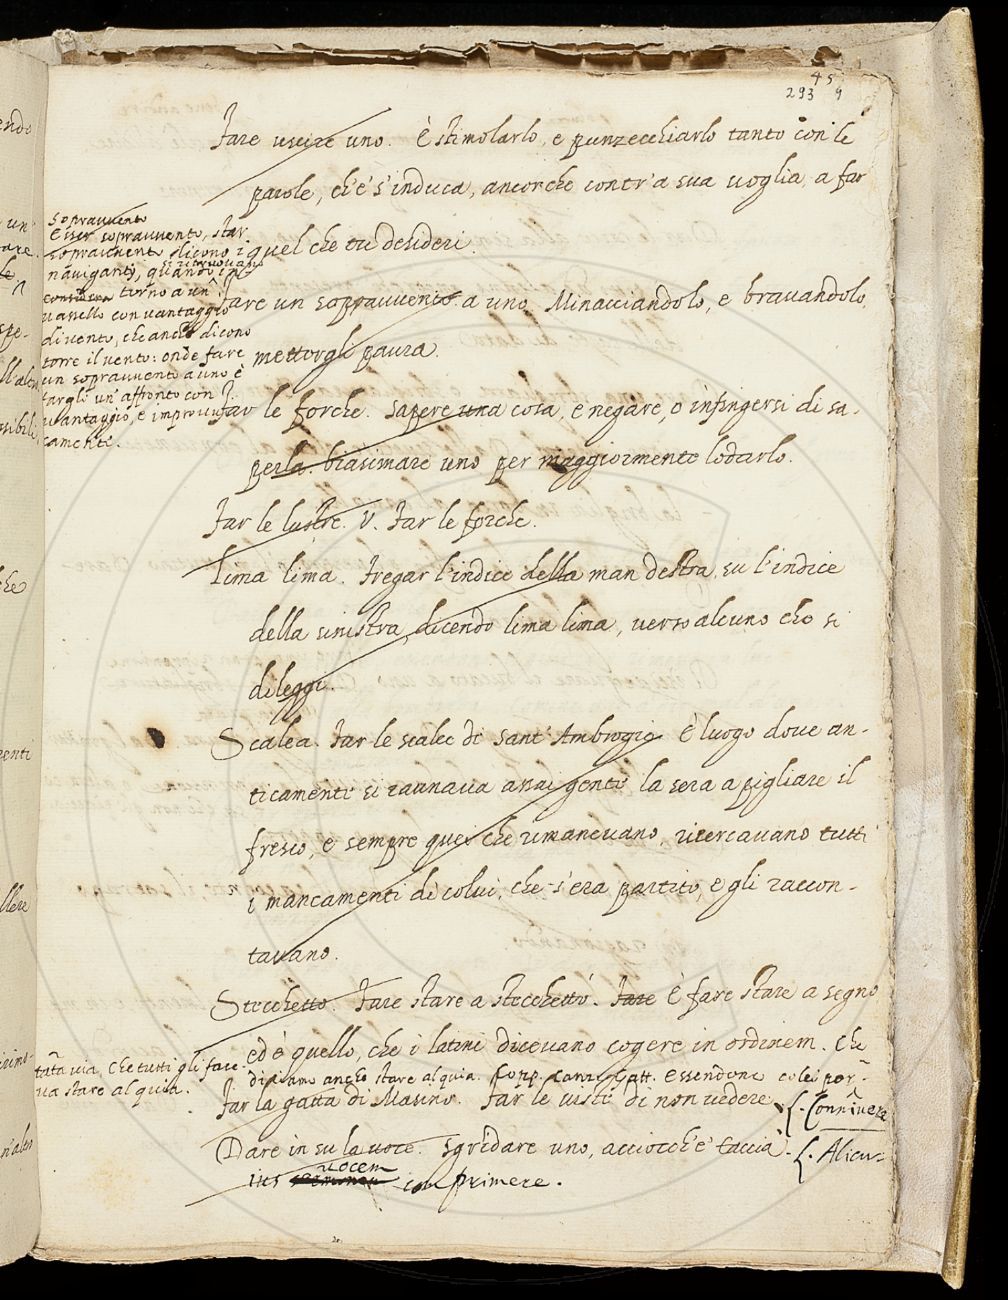 45
293 9
Fare uscire uno. È stimolarlo, e punzecchiarlo tanto con le
parole, ch'e' s'induca, ancorche contr'a sua voglia, a far
quel che tu desideri.
Sopravvento
Esser sopravvento, star
sopravvento dicono i
naviganti, quando
si ritrovano in-
torno a un
vasello con vantaggio
di vento, che anche dicono
torre il vento: onde fare
un sopravvento a uno è
fargli un'affronto con
vantaggio, e improvvisa-
camente.
Fare un soppravvento a uno. Minacciandolo, e bravandolo,
mettergli paura.
Far le forche. Sapere una cosa, e negare, o infingersi di sa-
perla. biasimare uno per maggiormente lodarlo.
Far le lustre. V. Far le forche.
Lima lima. Fregar l'indice della man destra, su l'indice
della sinistra, dicendo lima lima, verso alcuno che si
dileggi.
Scalea. Far le scalee di Sant'Ambrogio. È luogo dove an-
ticamente si raunava assai gente la sera a pigliare il
fresco, e sempre quei che rimanevano, ricercavano tutti
i mancamenti di colui, che s'era partito, e gli raccon-
tavano.
Stecchetto. Fare stare a stecchetto. Fare È fare stare a segno
ed è quello, che i latini dicevano cogere in ordinem. Che
diciamo ancho stare al quia. Copp. Canz. Gatt. Essendone colei por-
tata via, che tutti gli face-
va stare al quia.
Far la gatta di Masino. Far le viste di non vedere. L. Connivere
Dare in su la voce. Sgridare uno, acciocch'e' taccia. L. Alicu-
ius vocem comprimere.